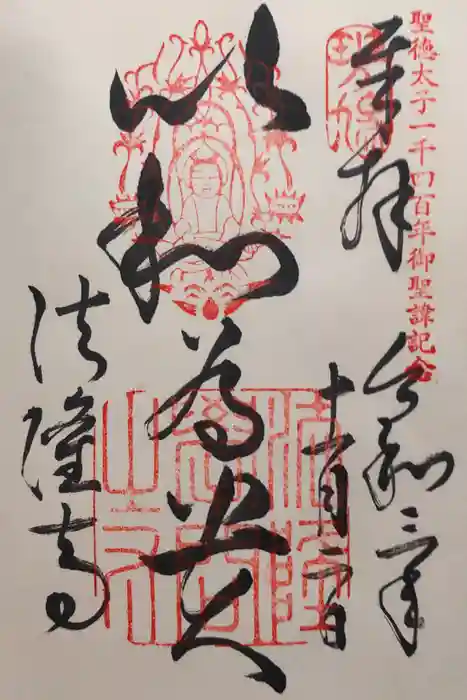 聖徳太子一千四百年御聖諱記念
奉拝
令和三年
十一月二日
以和為貴
法隆寺